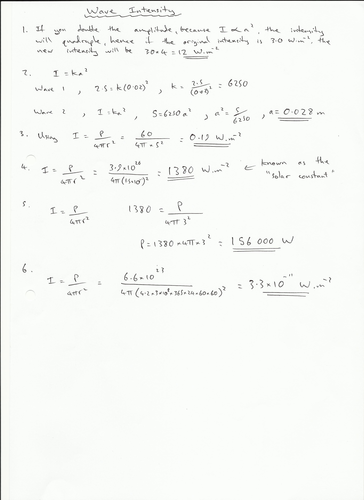 Wave Intensity
1. If you double the amplitude, because I ∝ a², the intensity
will quadruple, hence if the original intensity is 3.0 W.m⁻², the
new intensity will be 3.0×4 = 12 W.m⁻²
2. I = ka²
Wave 1, 2.5 = k(0.02)², k = 2.5/(0.02)² = 6250
Wave 2, I = ka², 5 = 6250a², a² = 5/6250, a = 0.028 m
3. Using I = P/4πr² = 60/4π×5² = 0.19 W.m⁻²
4. I = P/4πr² = 3.9×10²⁶/4π(15×10¹⁰)² = 1380 W.m⁻² ← known as the
"solar constant"
5. I = P/4πr² 1380 = P/4π3²
P = 1380×4π×3² = 156 000 W
6. I = P/4πr² = 6.6×10²³/4π(4.2×3×10⁸×365×24×60×60)² = 3.3×10⁻¹¹ W.m⁻²